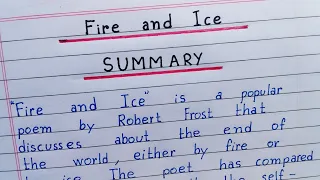 Fire and Ice
SUMMARY
"Fire and Ice" is a popular
poem by Robert Frost that
discusses about the end of
the world, either by fire or
ice. The poet has compared
the self-